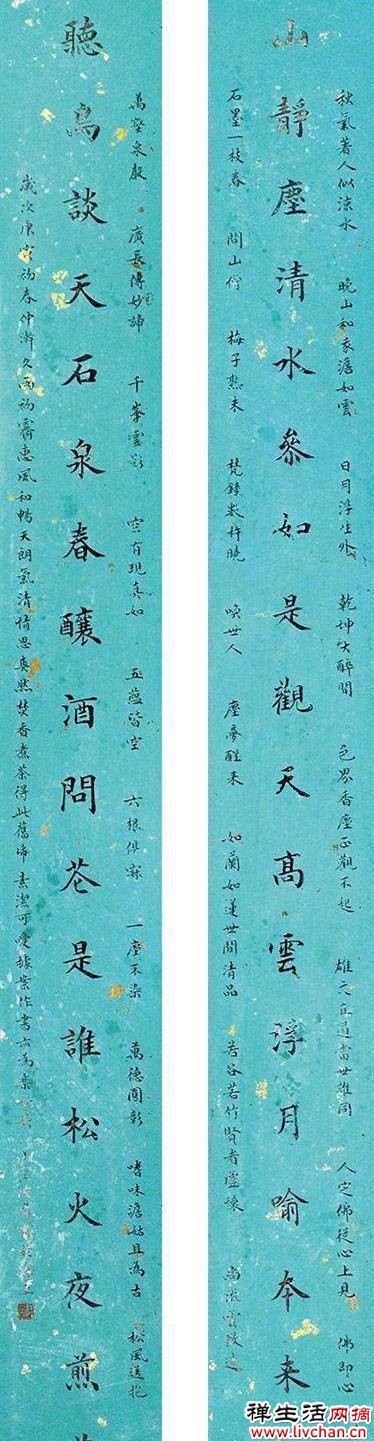 秋氣著人似涼水 晚山和衾澹如雲 日月浮生外 乾坤大醉間 色界香塵正觀不起 雄六直道當世誰同 人定佛從心上見 佛即心
山靜塵清水參如是觀天高雲浮月喻本来
石墨一枝春 問山僧 梅子熟未 梵鐘數杵曉 喚世人 塵夢醒来 如蘭如蓮世間清品 若谷若竹賢者虛懷
萬壑泉聲 廣長傳妙諦 千峯雲影 空有現真如 五蘊皆空 六根俱寂 一塵不染 萬德圓彰 嗜味澹姑且為古 松風送抱
聽鳥談天石泉春釀酒問花是誰松火夜煎
歲次庚寅初春仲澣久雨初霽惠風和暢天朗氣清情思爽然焚香煮茶得此舊紙素潔可愛據案作書亦為樂
禅生活网摘
www.livchan.cn